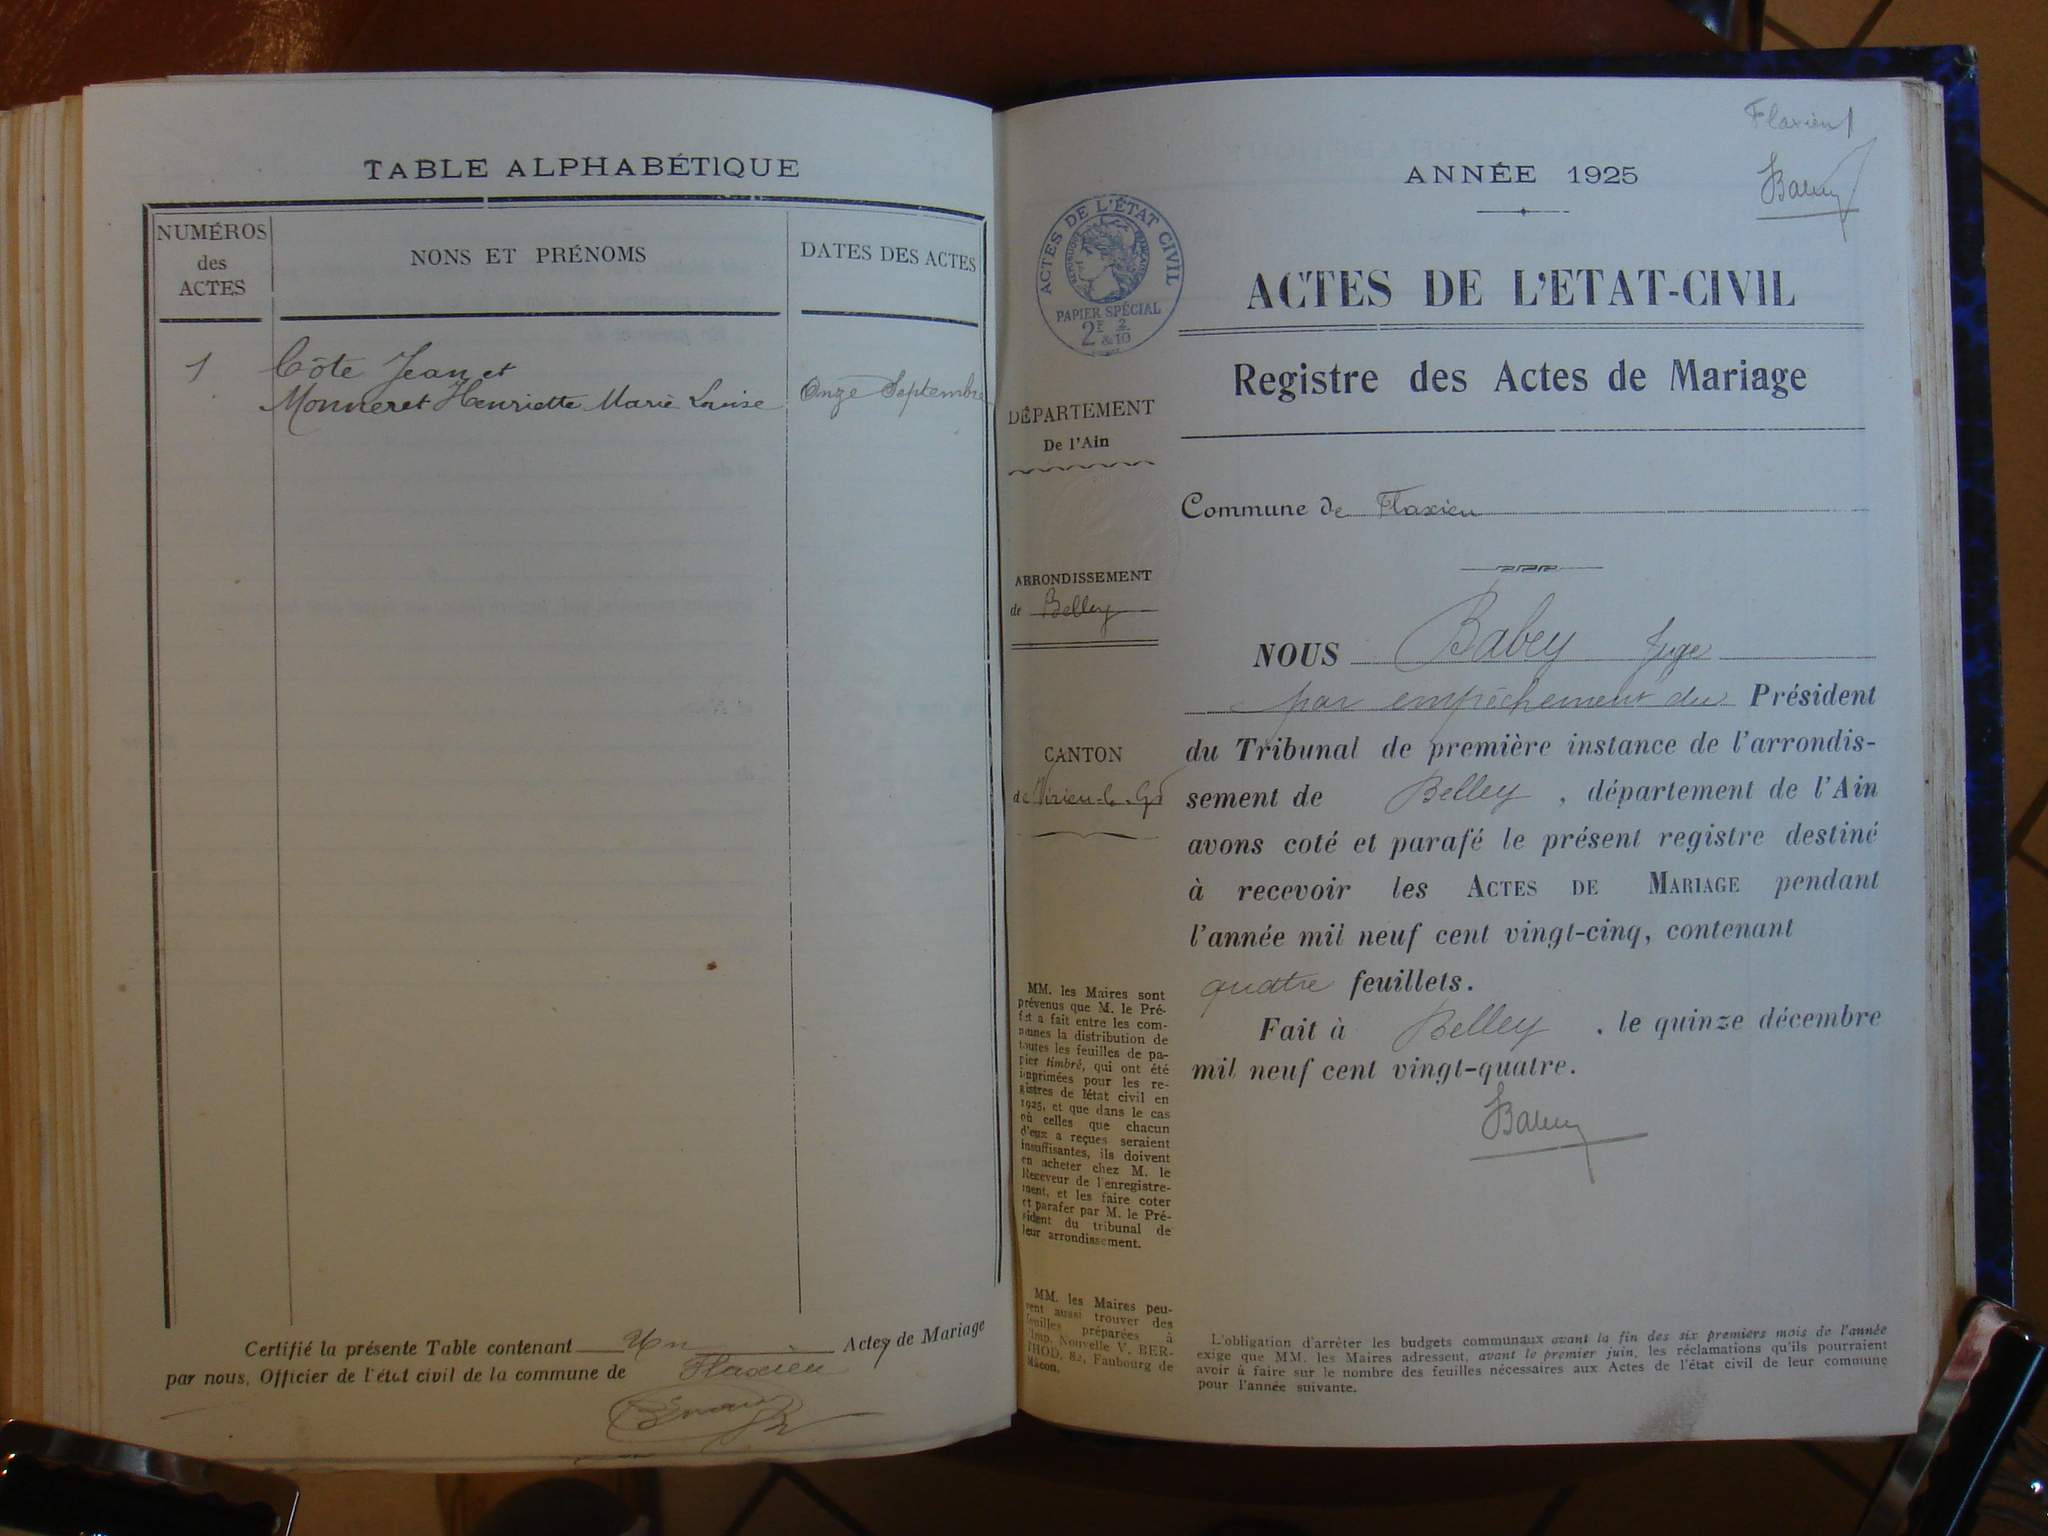 TABLE ALPHABÉTIQUE
NUMÉROS
des
ACTES
NONS ET PRÉNOMS
DATES DES ACTES
1
Côte Jean et
Monneret Henriette Marie Louise
Onze Septembre
Certifié la présente Table contenant Un Actes de Mariage
par nous, Officier de l'état civil de la commune de Flaxieu
Flaxieu 1
Babey
ANNÉE 1925
ACTES DE L'ÉTAT CIVIL
RÉPUBLIQUE FRANÇAISE
PAPIER SPÉCIAL
2F & 2/10
ACTES DE L'ETAT-CIVIL
Registre des Actes de Mariage
DÉPARTEMENT
De l'Ain
Commune de Flaxieu
ARRONDISSEMENT
de Belley
CANTON
de Virieu-le-Gd
NOUS Babey Juge
par empêchement du Président
du Tribunal de première instance de l'arrondis-
sement de Belley, département de l'Ain
avons coté et parafé le présent registre destiné
à recevoir les ACTES DE MARIAGE pendant
l'année mil neuf cent vingt-cinq, contenant
quatre feuillets.
Fait à Belley, le quinze décembre
mil neuf cent vingt-quatre.
Babey
MM. les Maires sont
prévenus que M. le Pré-
fet a fait entre les com-
munes la distribution de
toutes les feuilles de pa-
pier timbré, qui ont été
imprimées pour les re-
gistres de l'état civil en
1925, et que dans le cas
où celles que chacun
d'eux a reçues seraient
insuffisantes, ils doivent
en acheter chez M. le
Receveur de l'enregistre-
ment, et les faire coter
et parafer par M. le Pré-
sident du tribunal de
leur arrondissement.
MM. les Maires peu-
vent aussi trouver des
feuilles préparées à
l'Imp. Nouvelle V. BER-
THOD, 82, Faubourg de
Mâcon.
L'obligation d'arrêter les budgets communaux avant la fin des six premiers mois de l'année
exige que MM. les Maires adressent, avant le premier juin, les réclamations qu'ils pourraient
avoir à faire sur le nombre des feuilles nécessaires aux Actes de l'état civil de leur commune
pour l'année suivante.